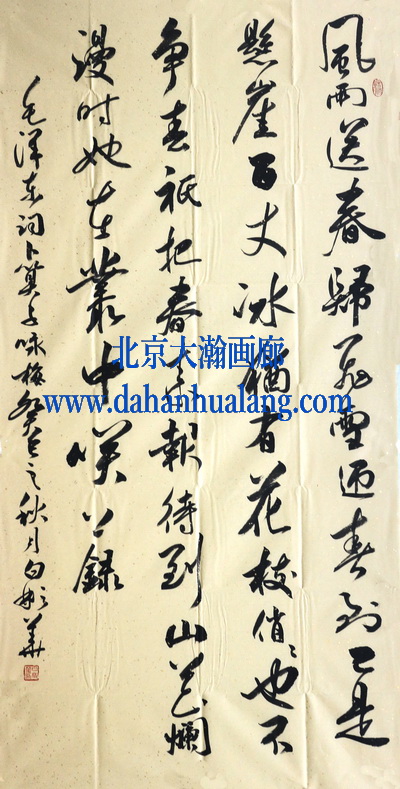 風雨送春歸飛雪迎春到已是
懸崖百丈冰猶有花枝俏〻也不
争春祇把春来報待到山花爛
漫时她在叢中咲錄
毛泽东词卜算子咏梅癸巳之秋月白
北京大瀚画廊
www.dahanhualang.com